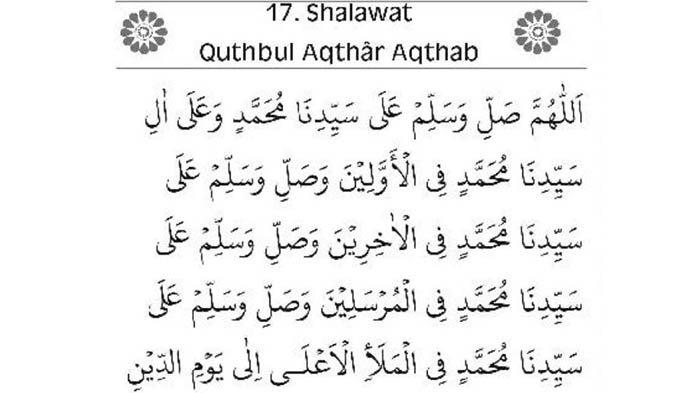 17. Shalawat
Quthbul Aqthâr Aqthab
اَللّٰهُمَّ صَلِّ وَسَلِّمْ عَلَى سَيِّدِنَا مُحَمَّدٍ وَعَلَى اٰلِ
سَيِّدِنَا مُحَمَّدٍ فِى الْأَوَّلِيْنَ وَصَلِّ وَسَلِّمْ عَلَى
سَيِّدِنَا مُحَمَّدٍ فِى الْاٰخِرِيْنَ وَصَلِّ وَسَلِّمْ عَلَى
سَيِّدِنَا مُحَمَّدٍ فِى الْمُرْسَلِيْنَ وَصَلِّ وَسَلِّمْ عَلَى
سَيِّدِنَا مُحَمَّدٍ فِى الْمَلَأِ الْاَعْلَــى اِلٰى يَوْمِ الدِّيْنِ